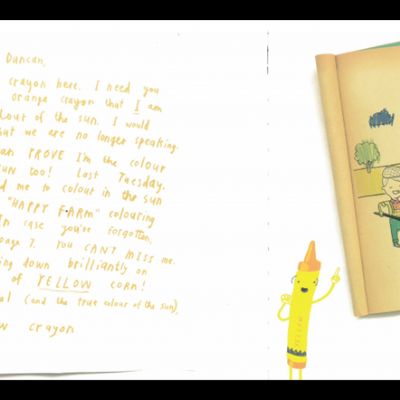 Duncan,
crayon here. I need you
orange crayon that I am
lour of the sun. I would
ut we are no longer speaking.
an PROVE I'm the colour
UN too! Last Tuesday,
d me to colour in the sun
"HAPPY FARM" colouring
n case you've forgotten,
page 7. You CAN'T MISS me.
ing down brilliantly on
of YELLOW corn!
al (and the true colour of the sun),
w crayon
YELLOW